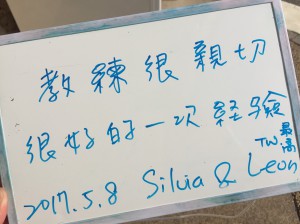 教練很親切
很好的一次経驗
TW最高
2017.5.8 Silvia & Leon